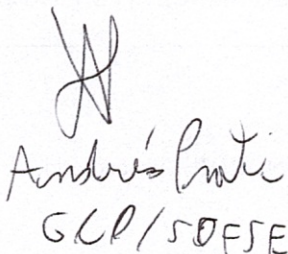 Andrés Prati
GCP/SDESE